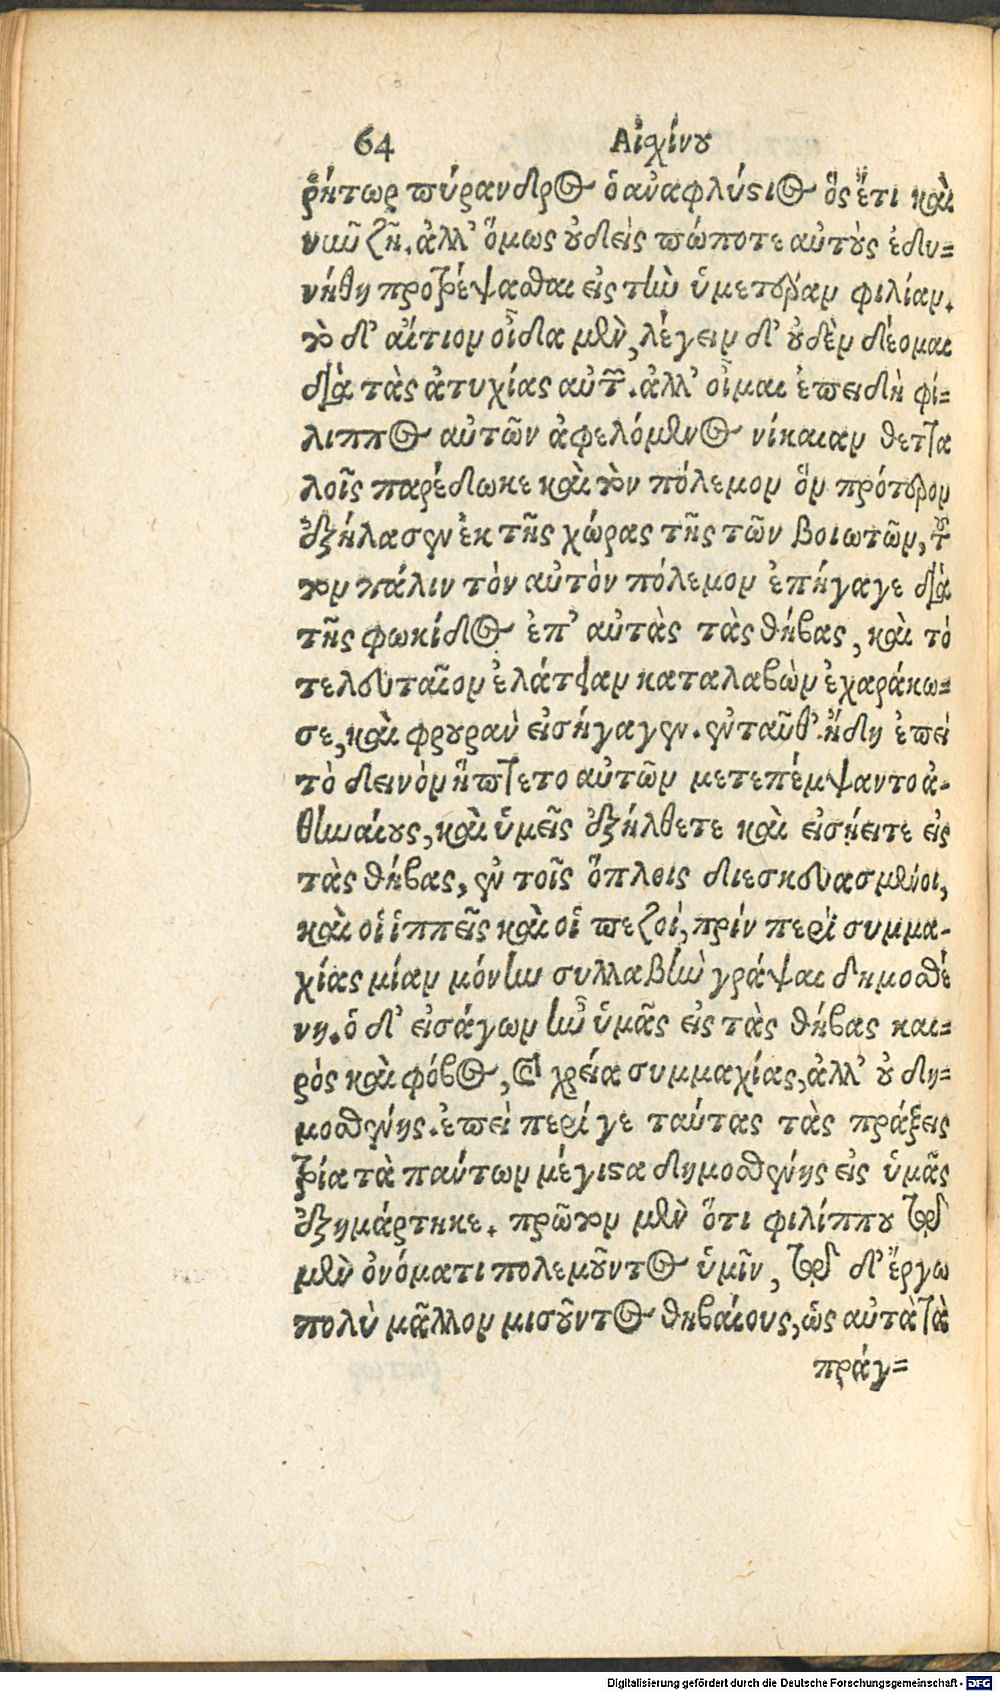 64 Αἰχίνου
ῥήτωρ πύρανδρος ὁ ἀναφλύστιος ὃς ἔτι καὶ
νῦν ζῇ. ἀλλ' ὅμως οὐδεὶς πώποτε αὐτοὺς ἐδυ-
νήθη προτρέψασθαι εἰς τὴν ὑμετέραν φιλίαν.
τὸ δ' αἴτιον οἶδα μὲν, λέγειν δ' οὐδὲν δέομαι
διὰ τὰς ἀτυχίας αὐτῶν. ἀλλ' οἶμαι ἐπειδὴ φί-
λιππος αὐτῶν ἀφελόμενος νίκαιαν θεττα
λοῖς παρέδωκε καὶ τὸν πόλεμον ὃν πρότερον
ἐξήλασεν ἐκ τῆς χώρας τῆς τῶν βοιωτῶν, τοῦ
τον πάλιν τὸν αὐτὸν πόλεμον ἐπήγαγε διὰ
τῆς φωκίδος ἐπ' αὐτὰς τὰς θήβας, καὶ τὸ
τελευταῖον ἐλάτειαν καταλαβὼν ἐχαράκω-
σε, καὶ φρουρὰν εἰσήγαγεν. ἐνταῦθ' ἤδη ἐπεὶ
τὸ δεινὸν ἥπτετο αὐτῶν μετεπέμψαντο ἀ-
θηναίους, καὶ ὑμεῖς ἐξήλθετε καὶ εἰσῄειτε εἰς
τὰς θήβας, ἐν τοῖς ὅπλοις διεσκευασμένοι,
καὶ οἱ ἱππεῖς καὶ οἱ πεζοί, πρίν περὶ συμμα-
χίας μίαν μόνην συλλαβὴν γράψαι δημοσθέ
νη. ὁ δ' εἰσάγων ἦν ὑμᾶς εἰς τὰς θήβας και-
ρὸς καὶ φόβος, καὶ χρεία συμμαχίας, ἀλλ' οὐ δη-
μοσθένης. ἐπεὶ περί γε ταύτας τὰς πράξεις
τρία τὰ πάντων μέγιστα δημοσθένης εἰς ὑμᾶς
ἐξημάρτηκε. πρῶτον μὲν ὅτι φιλίππου τῷ
μὲν ὀνόματι πολεμοῦντος ὑμῖν, τῷ δ' ἔργω
πολὺ μᾶλλον μισοῦντος θηβαίους, ὡς αὐτὰ τὰ
πράγ-
Digitalisierung gefördert durch die Deutsche Forschungsgemeinschaft - DFG